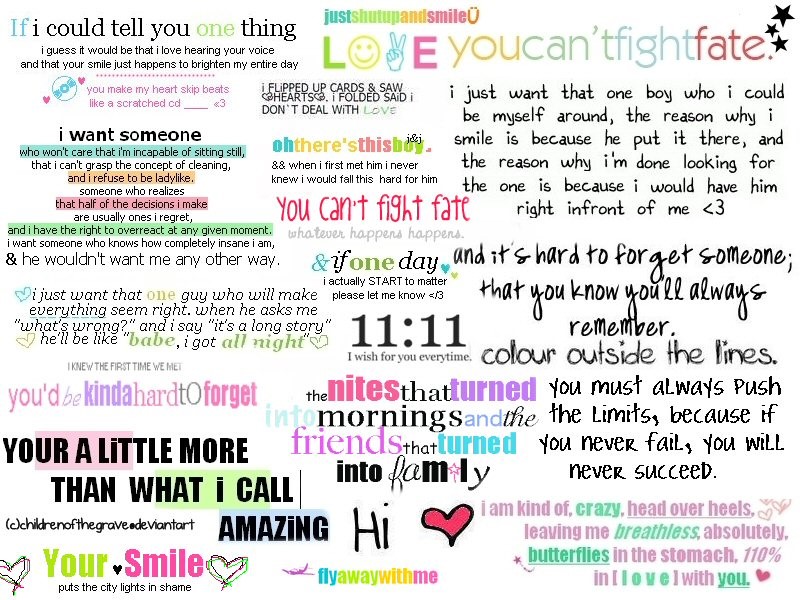 If i could tell you one thing
i guess it would be that i love hearing your voice
and that your smile just happens to brighten my entire day
you make my heart skip beats
like a scratched cd ____ <3
i want someone
who won't care that i'm incapable of sitting still,
that i can't grasp the concept of cleaning,
and i refuse to be ladylike.
someone who realizes
that half of the decisions i make
are usually ones i regret,
and i have the right to overreact at any given moment.
i want someone who knows how completely insane i am,
& he wouldn't want me any other way.
i just want that one guy who will make
everything seem right. when he asks me
"what's wrong?" and i say "it's a long story"
he'll be like "babe, i got all night"
I KNEW THE FIRST TIME WE MET
you'd be kinda hard to forget
YOUR A LiTTLE MORE
THAN WHAT i CALL
AMAZiNG
(c)childrenofthegrave@deviantart
Your ♥ Smile
puts the city lights in shame
justshutupandsmileÜ
LOVE
i FLiPPED UP CARDS & SAW
HEARTS. i FOLDED SAiD i
DON`T DEAL WiTH LOVE
ohthere'sthisboy.
j&j
&& when i first met him i never
knew i would fall this hard for him
YOU CAN'T FIGHT FATE
whatever happens happens.
& if one day
i actually START to matter
please let me know </3
11:11
I wish for you everytime.
the nites that turned
into mornings and the
friends that turned
into family
Hi
flyawaywithme
youcan'tfightfate.
i just want that one boy who i could
be myself around, the reason why i
smile is because he put it there, and
the reason why i'm done looking for
the one is because i would have him
right infront of me <3
and it's hard to forget someone;
that you know you'll always
remember.
colour outside the lines.
you must always push
the limits, because if
you never fail, you will
never succeed.
i am kind of, crazy, head over heels,
leaving me breathless, absolutely,
butterflies in the stomach, 110%
in [ l o v e ] with you.